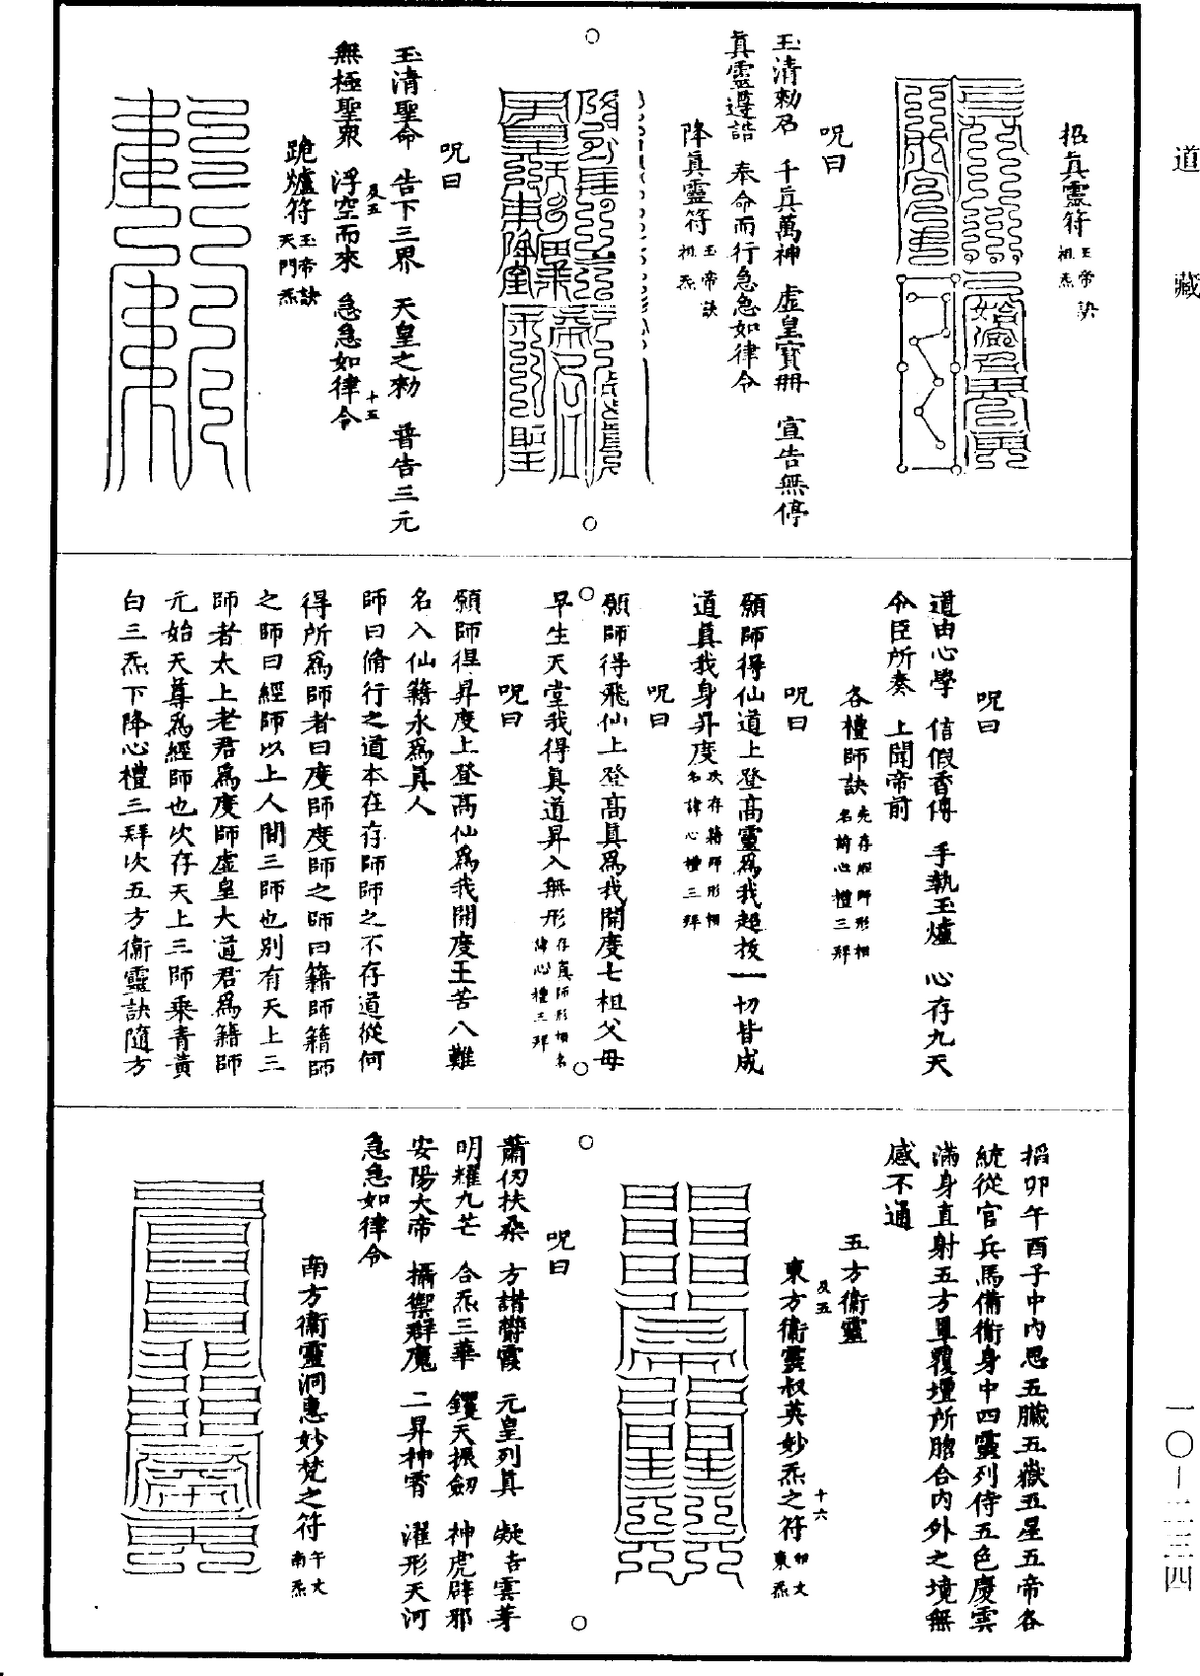 道藏
招真靈符 玉帝訣 祖炁
呪曰
玉清勑召 千真萬神 虛皇寶冊 宣告無停
真靈遵誥 奉命而行急急如律令
降真靈符 玉帝訣 祖炁
呪曰
玉清聖命 告下三界 天皇之勑 普告三元
無極聖衆 浮空而來 急急如律令
及五 十五
跪爐符 玉帝訣 天門炁
呪曰
道由心學 信假香傳 手執玉爐 心存九天
令臣所奏 上聞帝前
各禮師訣 先存 師形相名諱心禮三拜
呪曰
願師得仙道上登高靈爲我超拔一切皆成
道真我身昇度 次存籍師形相名諱心禮三拜
呪曰
願師得飛仙上登高真爲我開度七祖父母
早生天堂我得真道昇入無形 存真師形相名諱心禮三拜
呪曰
願師得昇度上登高仙爲我開度王苦八難
名入仙籍永爲真人
師曰脩行之道本在存師師之不存道從何
得所爲師者曰度師度師之師曰籍師籍師
之師曰經師以上人間三師也別有天上三
師者太上老君爲度師虛皇大道君爲籍師
元始天尊爲經師也次存天上三師乘青黃
白三炁下降心禮三拜次五方衞靈訣隨方
掐卯午酉子中內思五臟五嶽五星五帝各
統從官兵馬備衞身中四靈列侍五色慶雲
滿身直射五方罩覆壇所脗合內外之境無
感不通
五方衞靈
及五 十六
東方衞靈叔英妙炁之符 卯文 東炁
呪曰
蕭仞扶桑 方諸鬱霞 元皇列真 凝吉雲芽
明耀九芒 合炁三華 鑊天振劒 神虎辟邪
安陽大帝 攝禦群魔 二昇神霄 濯形天河
急急如律令
南方衞靈洞惠妙梵之符 午文 南炁
一〇-二三四